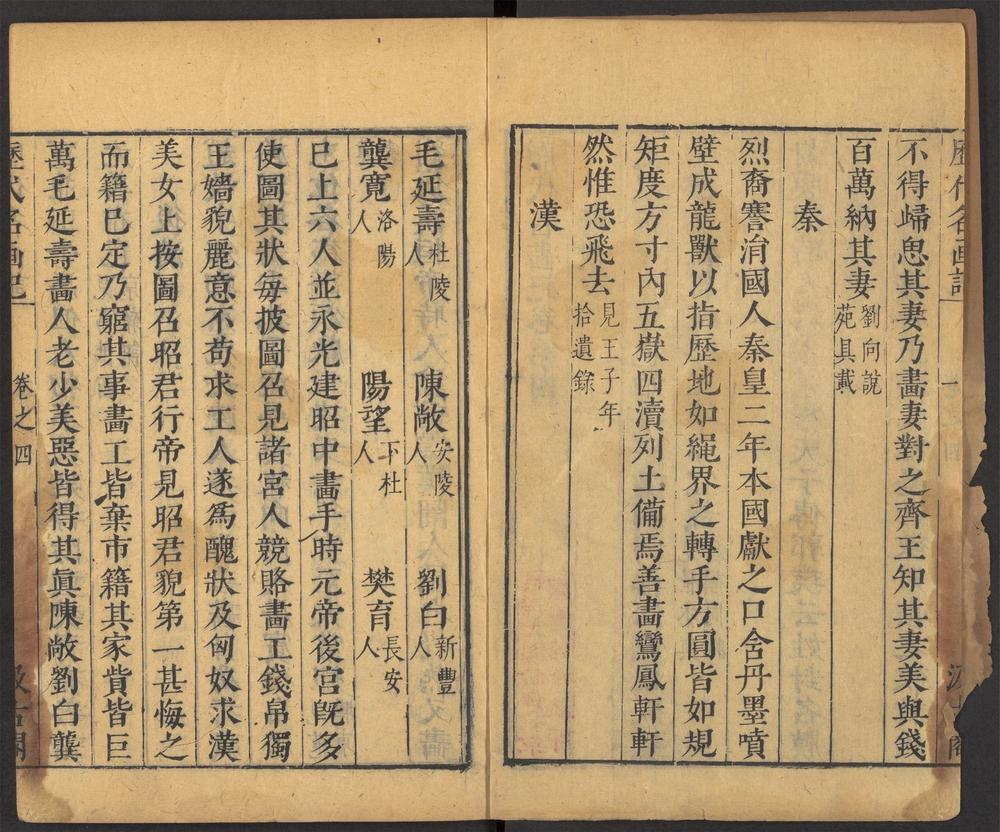 歷代名画記 一
不得歸思其妻乃畵妻對之齊王知其妻美與錢
百萬納其妻劉向說苑具載
秦
烈裔謇涓國人秦皇二年本國獻之口含丹墨噴
壁成龍獸以指歷地如繩界之轉手方圓皆如規
矩度方寸內五嶽四瀆列土備焉善畵鸞鳳軒軒
然惟恐飛去見王子年拾遺錄
漢
毛延壽杜陵人 陳敞安陵人 劉白新豐人
龔寬洛陽人 陽望下杜人 樊育長安人
已上六人並永光建昭中畵手時元帝後宮旣多
使圖其狀每披圖召見諸宮人競賂畵工錢帛獨
王嬙貌麗意不苟求工人遂爲醜狀及匈奴求漢
美女上按圖召昭君行帝見昭君貌第一甚悔之
而籍已定乃窮其事畵工皆棄市籍其家貲皆巨
萬毛延壽畵人老少美惡皆得其眞陳敞劉白龔
歷代名画記 卷之四 汲古閣